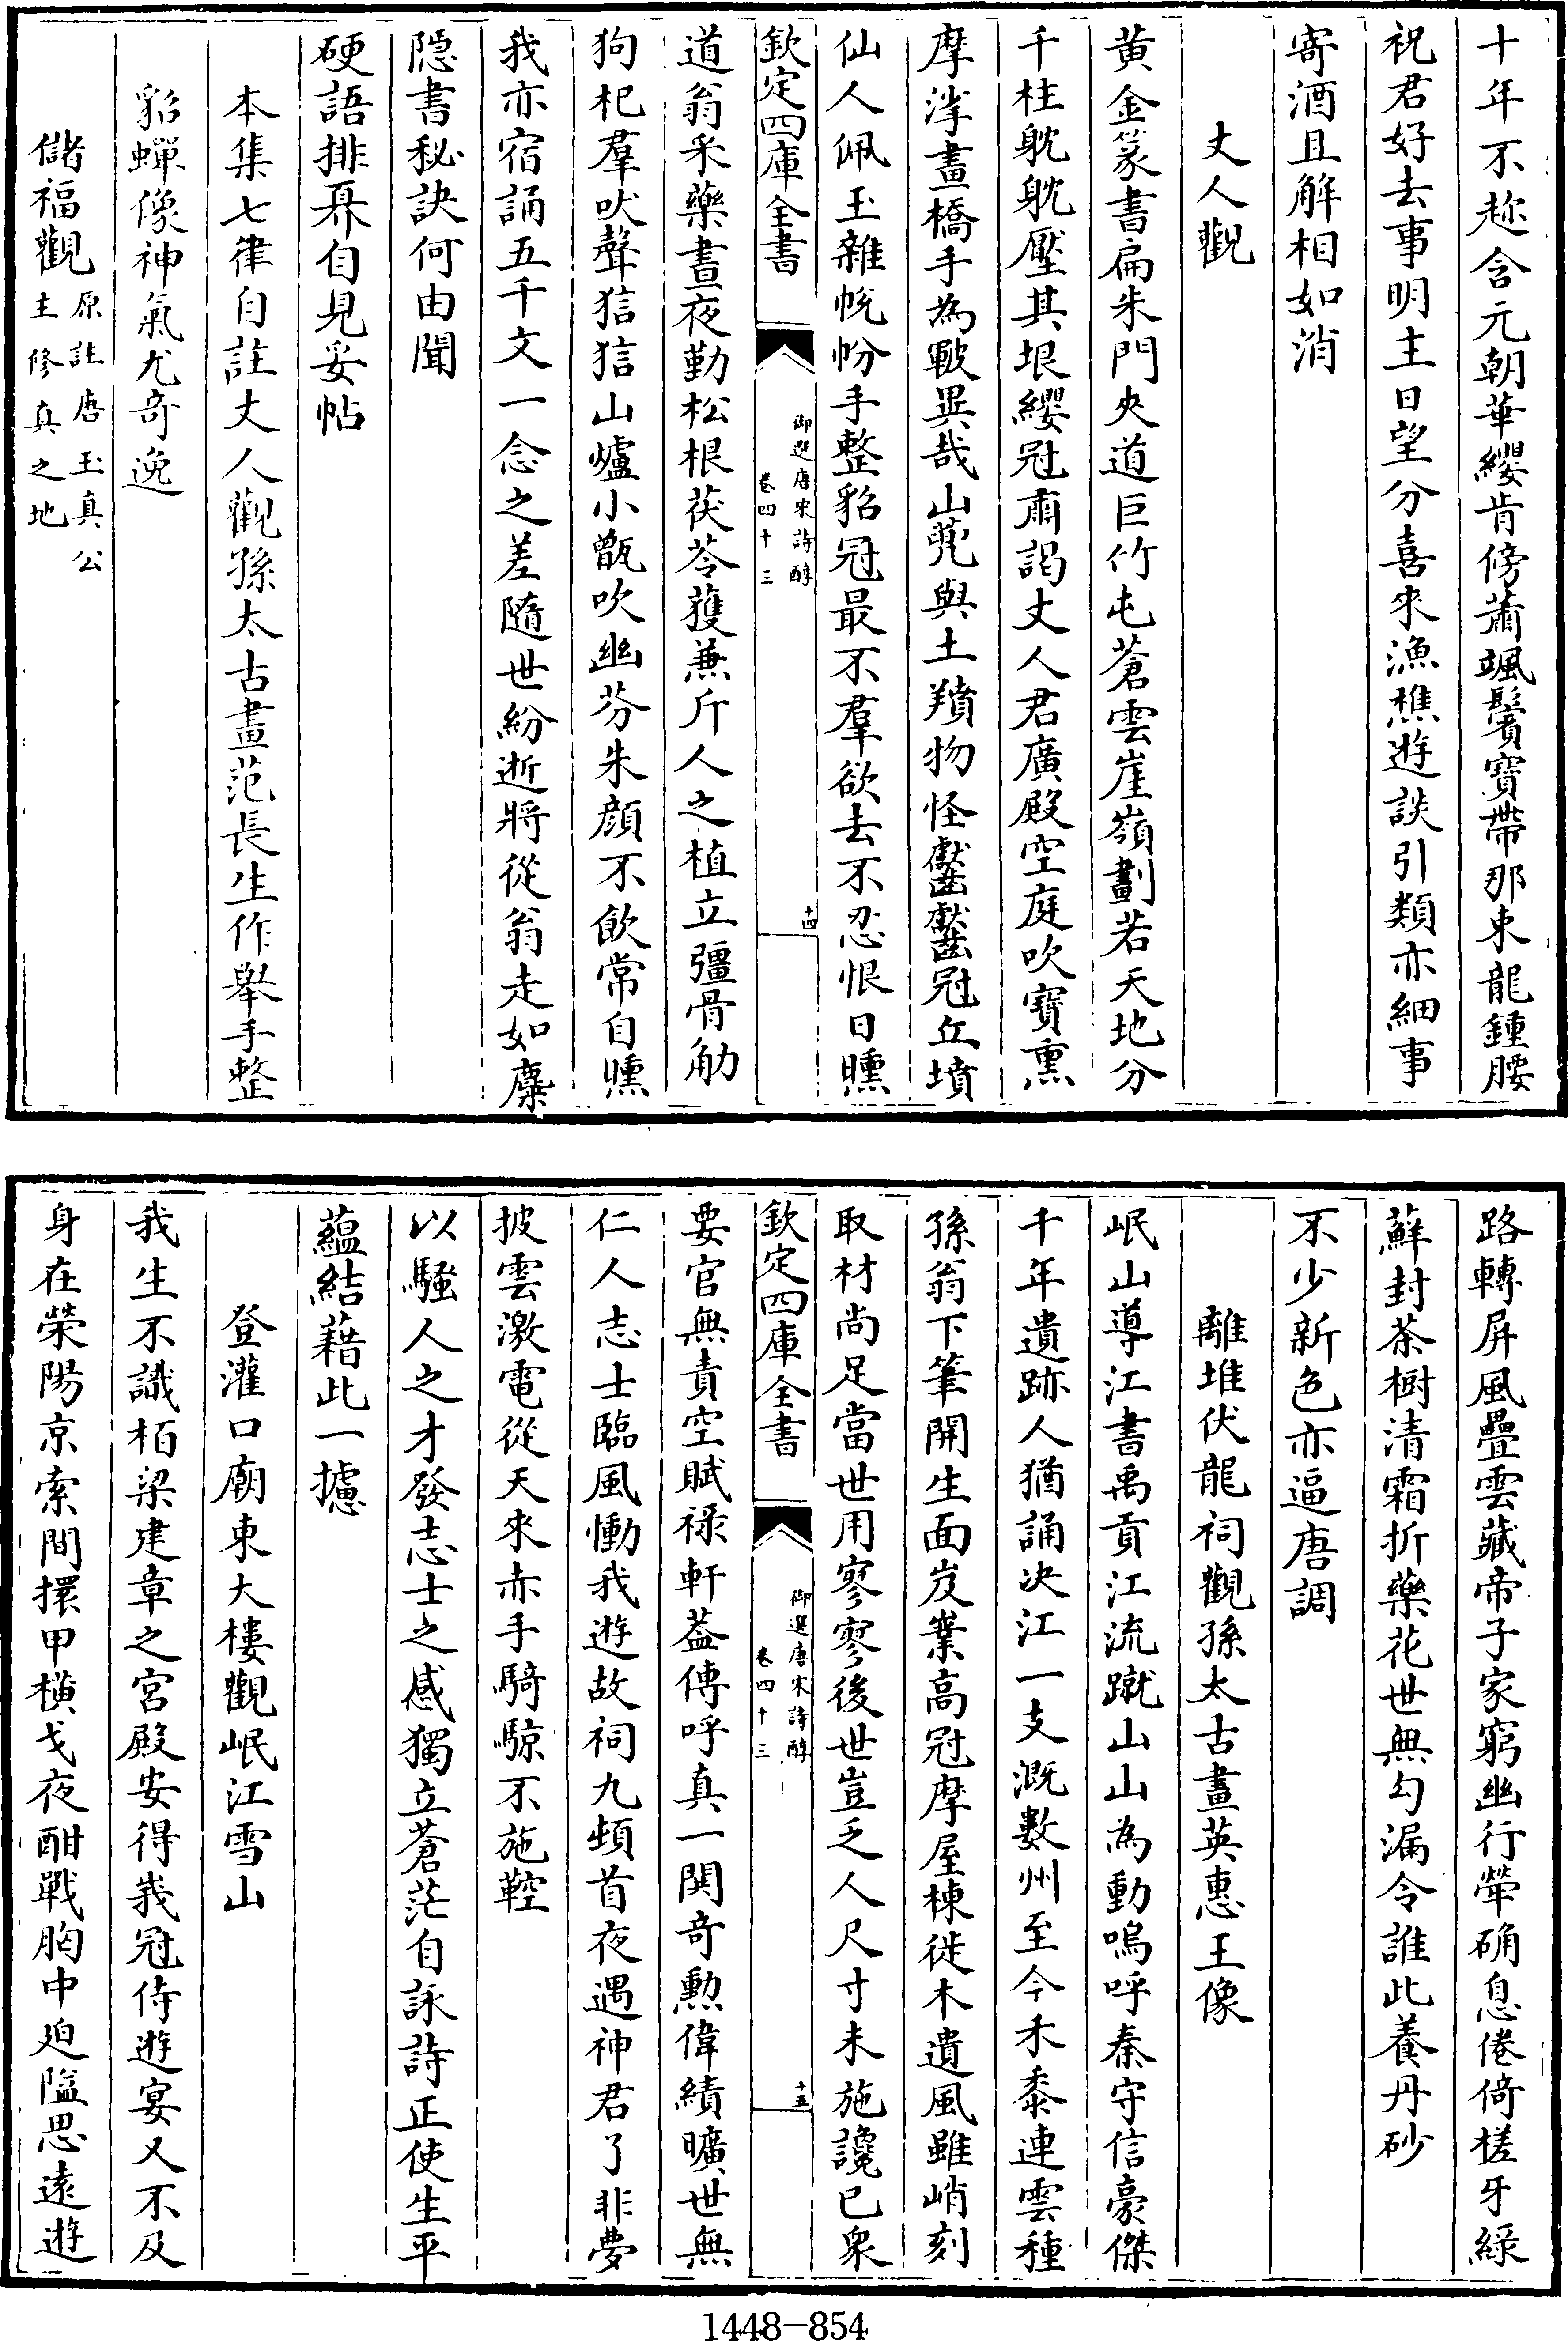 十年不趂含元朝華纓肯傍蕭颯鬢寶帶那束龍鍾腰
祝君好去事明主日望分喜來漁樵遊談引類亦細事
寄酒且解相如消
丈人觀
黄金篆書扁朱門夾道巨竹屯蒼雲崖嶺劃若天地分
千柱眈眈壓其垠纓冠肅謁丈人君廣殿空庭吹寶熏
摩挲畫橋手為皸異哉山㚇與土羵物怪齾齾冠丘墳
仙人佩玉雜帨帉手整貂冠最不羣欲去不忍恨日曛
欽定四庫全書
御選唐宋詩醇
卷四十三
十四
道翁采藥晝夜勤松根茯苓獲兼斤人之植立彊骨觔
狗杞羣吠聲狺狺山爐小甑吹幽芬朱顔不飲常自醺
我亦宿誦五千文一念之差隨世紛逝將從翁走如麋
隠書秘訣何由聞
硬語排奡自見妥帖
本集七律自註丈人觀孫太古畫范長生作舉手整
貂蟬像神氣尤竒逸
儲福觀
原註唐玉真公
主修真之地
路轉屏風疊雲藏帝子家窮幽行犖确息倦倚槎牙緑
蘚封茶樹清霜折藥花世無勾漏令誰此養丹砂
不少新色亦逼唐調
離堆伏龍祠觀孫太古畫英惠王像
岷山導江書禹貢江流蹴山山為動嗚呼秦守信豪傑
千年遺跡人猶誦决江一支溉數州至今禾黍連雲種
孫翁下筆開生面岌嶪高冠摩屋棟徙木遺風雖峭刻
取材尚足當世用寥寥後世豈乏人尺寸未施讒已衆
欽定四庫全書
御選唐宋詩醇
卷四十三
十五
要官無責空賦禄軒葢傳呼真一閧奇勲偉績曠世無
仁人志士臨風慟我遊故祠九頓首夜遇神君了非夢
披雲激電從天來赤手騎鯨不施鞚
以騷人之才發志士之感獨立蒼茫自詠詩正使生平
藴結藉此一攄
登灌口廟東大樓觀岷江雪山
我生不識栢梁建章之宮殿安得峩冠侍遊宴又不及
身在滎陽京索間擐甲橫戈夜酣戰胸中廹隘思遠遊
1448-854